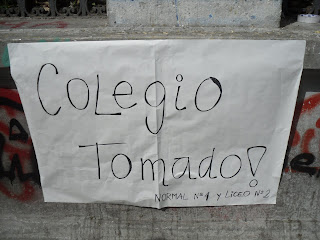 COLegio
Tomado!
NORMAL Nº1 y LICEO Nº2